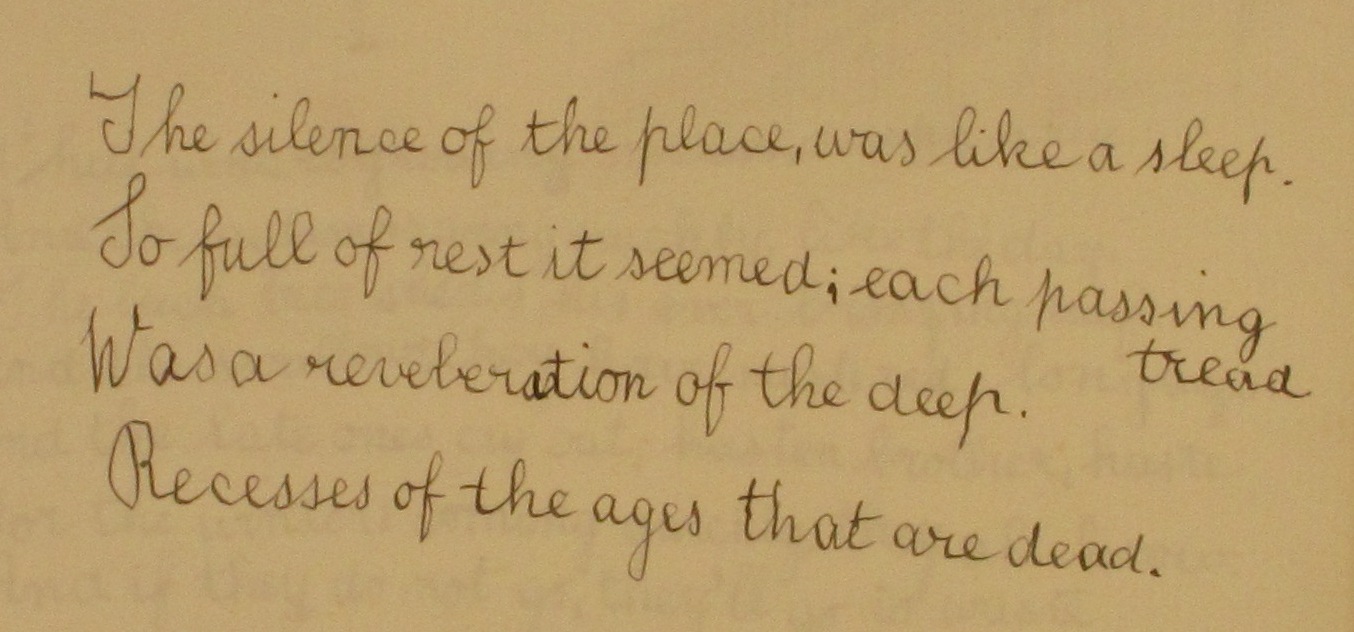 The silence of the place, was like a sleep.
So full of rest it seemed; each passing
tread
Was a reveberation of the deep.
Recesses of the ages that are dead.